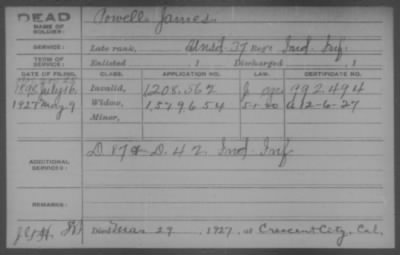 DEAD
NAME OF SOLDIER: Powell, James
SERVICE: Late rank, Unsd. 37 Reg't Ind. Inf.
TERM OF SERVICE: Enlisted , 1 Discharged , 1
DATE OF FILING. CLASS. APPLICATION NO. LAW. CERTIFICATE NO.
1898 July 16 Invalid, 1,208,562 992,494
1927 May 9 Widow, 1,579,654 5-1-20 A 12-6-27
Minor,
ADDITIONAL SERVICES: D 17 & D. 42 Ind. Inf
REMARKS:
Died Mar 29, 1927, at Crescent City, Cal.